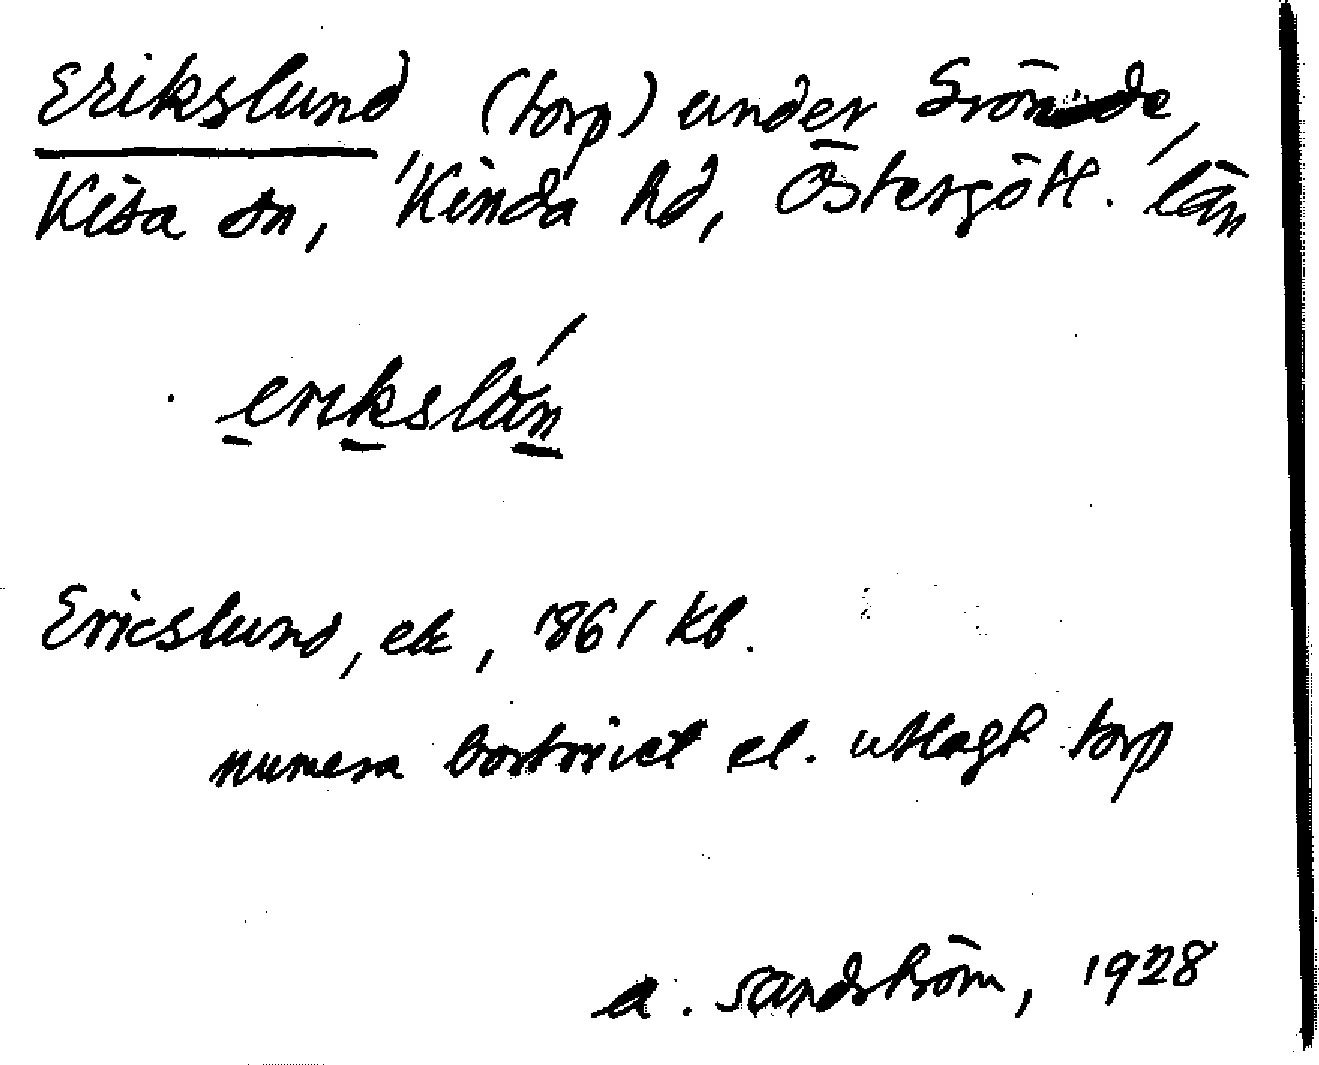 Erikslund (torp) under Grönede,
Kisa sn, Kinda hd, Östergötl. län
erikslún
Ericslund, etc, 1861 Kb.
numera bortrivet el. utlagt torp
A. Sandström, 1928